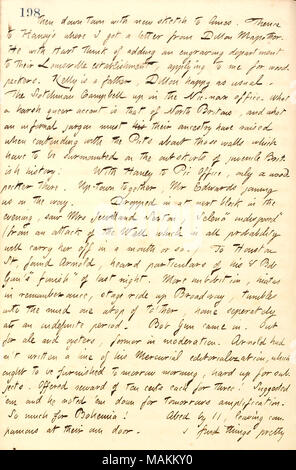 198
then down town with new sketch to Amos. Thence
to Haney's where I got a letter from Dillon Mapother.
He with Hart think of adding an engraving department
to their Louisville establishment, applying to me for wood
peckers. Kelly is a father. Dillon happy as usual.
The Scotchman Campbell up in the office. What
a harsh queer accent is that of North Britons, and what
an infernal jargon must their ancestry have raised
when contending with the Picts about those walls which
have to be surmounted in the outskirts of juvenile Brit-
ish history! With Haney to Pic Office, only a wood
pecker there. Up-town together, Mr Edwards joining
us on the way. Dropped in at next block in the
evening, saw Mrs Sexton, underpond
(from an attack of the Wall which in all probability
will carry her off in a month or so.) To Houston
St, found Arnold, heard particulars of his &
finish of last night. More inebriation, mutual
in remembrance, stage ride up Broadway, tumble
into the mud one atop of t'other, home seperately
at an indefinite period. Bob Gun came in. Out
for ale and oysters, former in moderation. Arnold had
n't written a line of his Mercurial editorialization, which
ought to be furnished to morrow morning, hard up for sub-
jects. Offered reward of ten cents each for three! Suggested
'em and he noted 'em down for tomorrows amplification.
So much for Bohemia! Abed by 11, leaving com-
panions at their own door. find things pretty
alamy
Image ID: MAKKY0
www.alamy.com